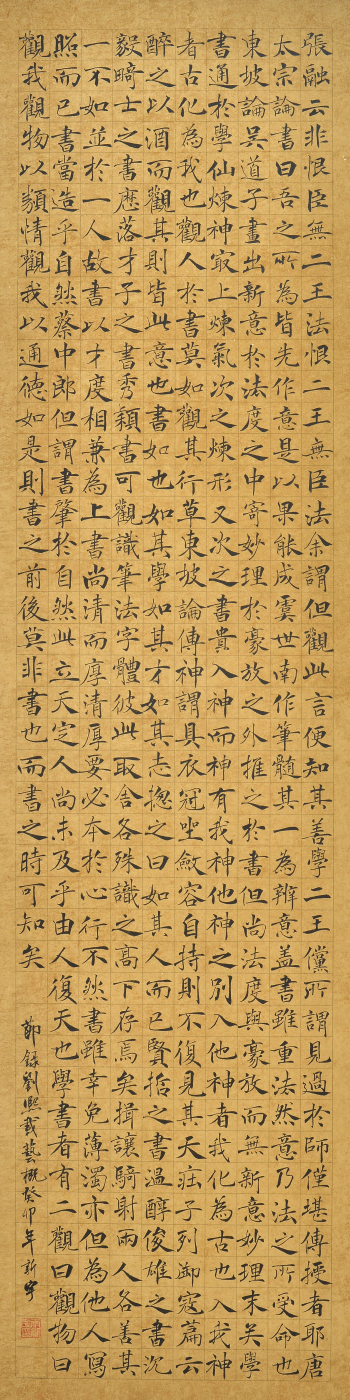 張融云非恨臣無二王法恨二王無臣法余謂但觀此言便知其善學二王儻所謂見過於師僅堪傳授者耶唐
太宗論書曰吾之所為皆先作意是以果能成虞世南作筆髓其一為辨意蓋書雖重法然意乃法之所受命也
東坡論吳道子畫出新意於法度之中寄妙理於豪放之外推之於書但尚法度與豪放而無新意妙理末矣學
書通於學仙煉神冣上煉氣次之煉形又次之書貴入神而神有我神他神之別入他神者我化為古也入我神
者古化為我也觀人於書莫如觀其行草東坡論傳神謂具衣冠坐斂容自持則不復見其天莊子列御寇篇云
醉之以酒而觀其則皆此意也書如也如其學如其才如其志總之曰如其人而已賢哲之書溫醇俊雄之書沉
毅畸士之書歷落才子之書秀穎書可觀識筆法字體彼此取舍各殊識之高下存焉矣揖讓騎射兩人各善其
一不如並於一人故書以才度相兼為上書尚清而厚清厚要必本於心行不然書雖幸免薄濁亦但為他人寫
照而已書當造乎自然蔡中郎但謂書肇於自然此立天定人尚未及乎由人復天也學書者有二觀曰觀物曰
觀我觀物以類情觀我以通德如是則書之前後莫非書也而書之時可知矣
節錄劉熙載藝概癸卯年新宇